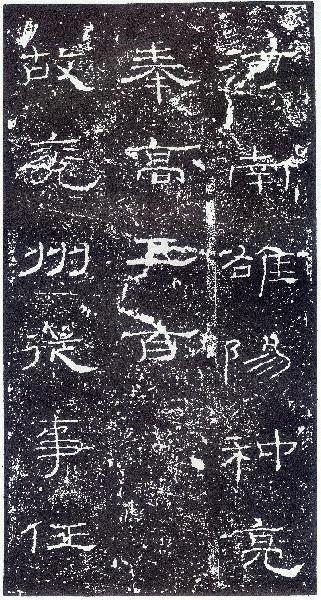 河南雒陽种亮
奉高五百
故兗州從事任